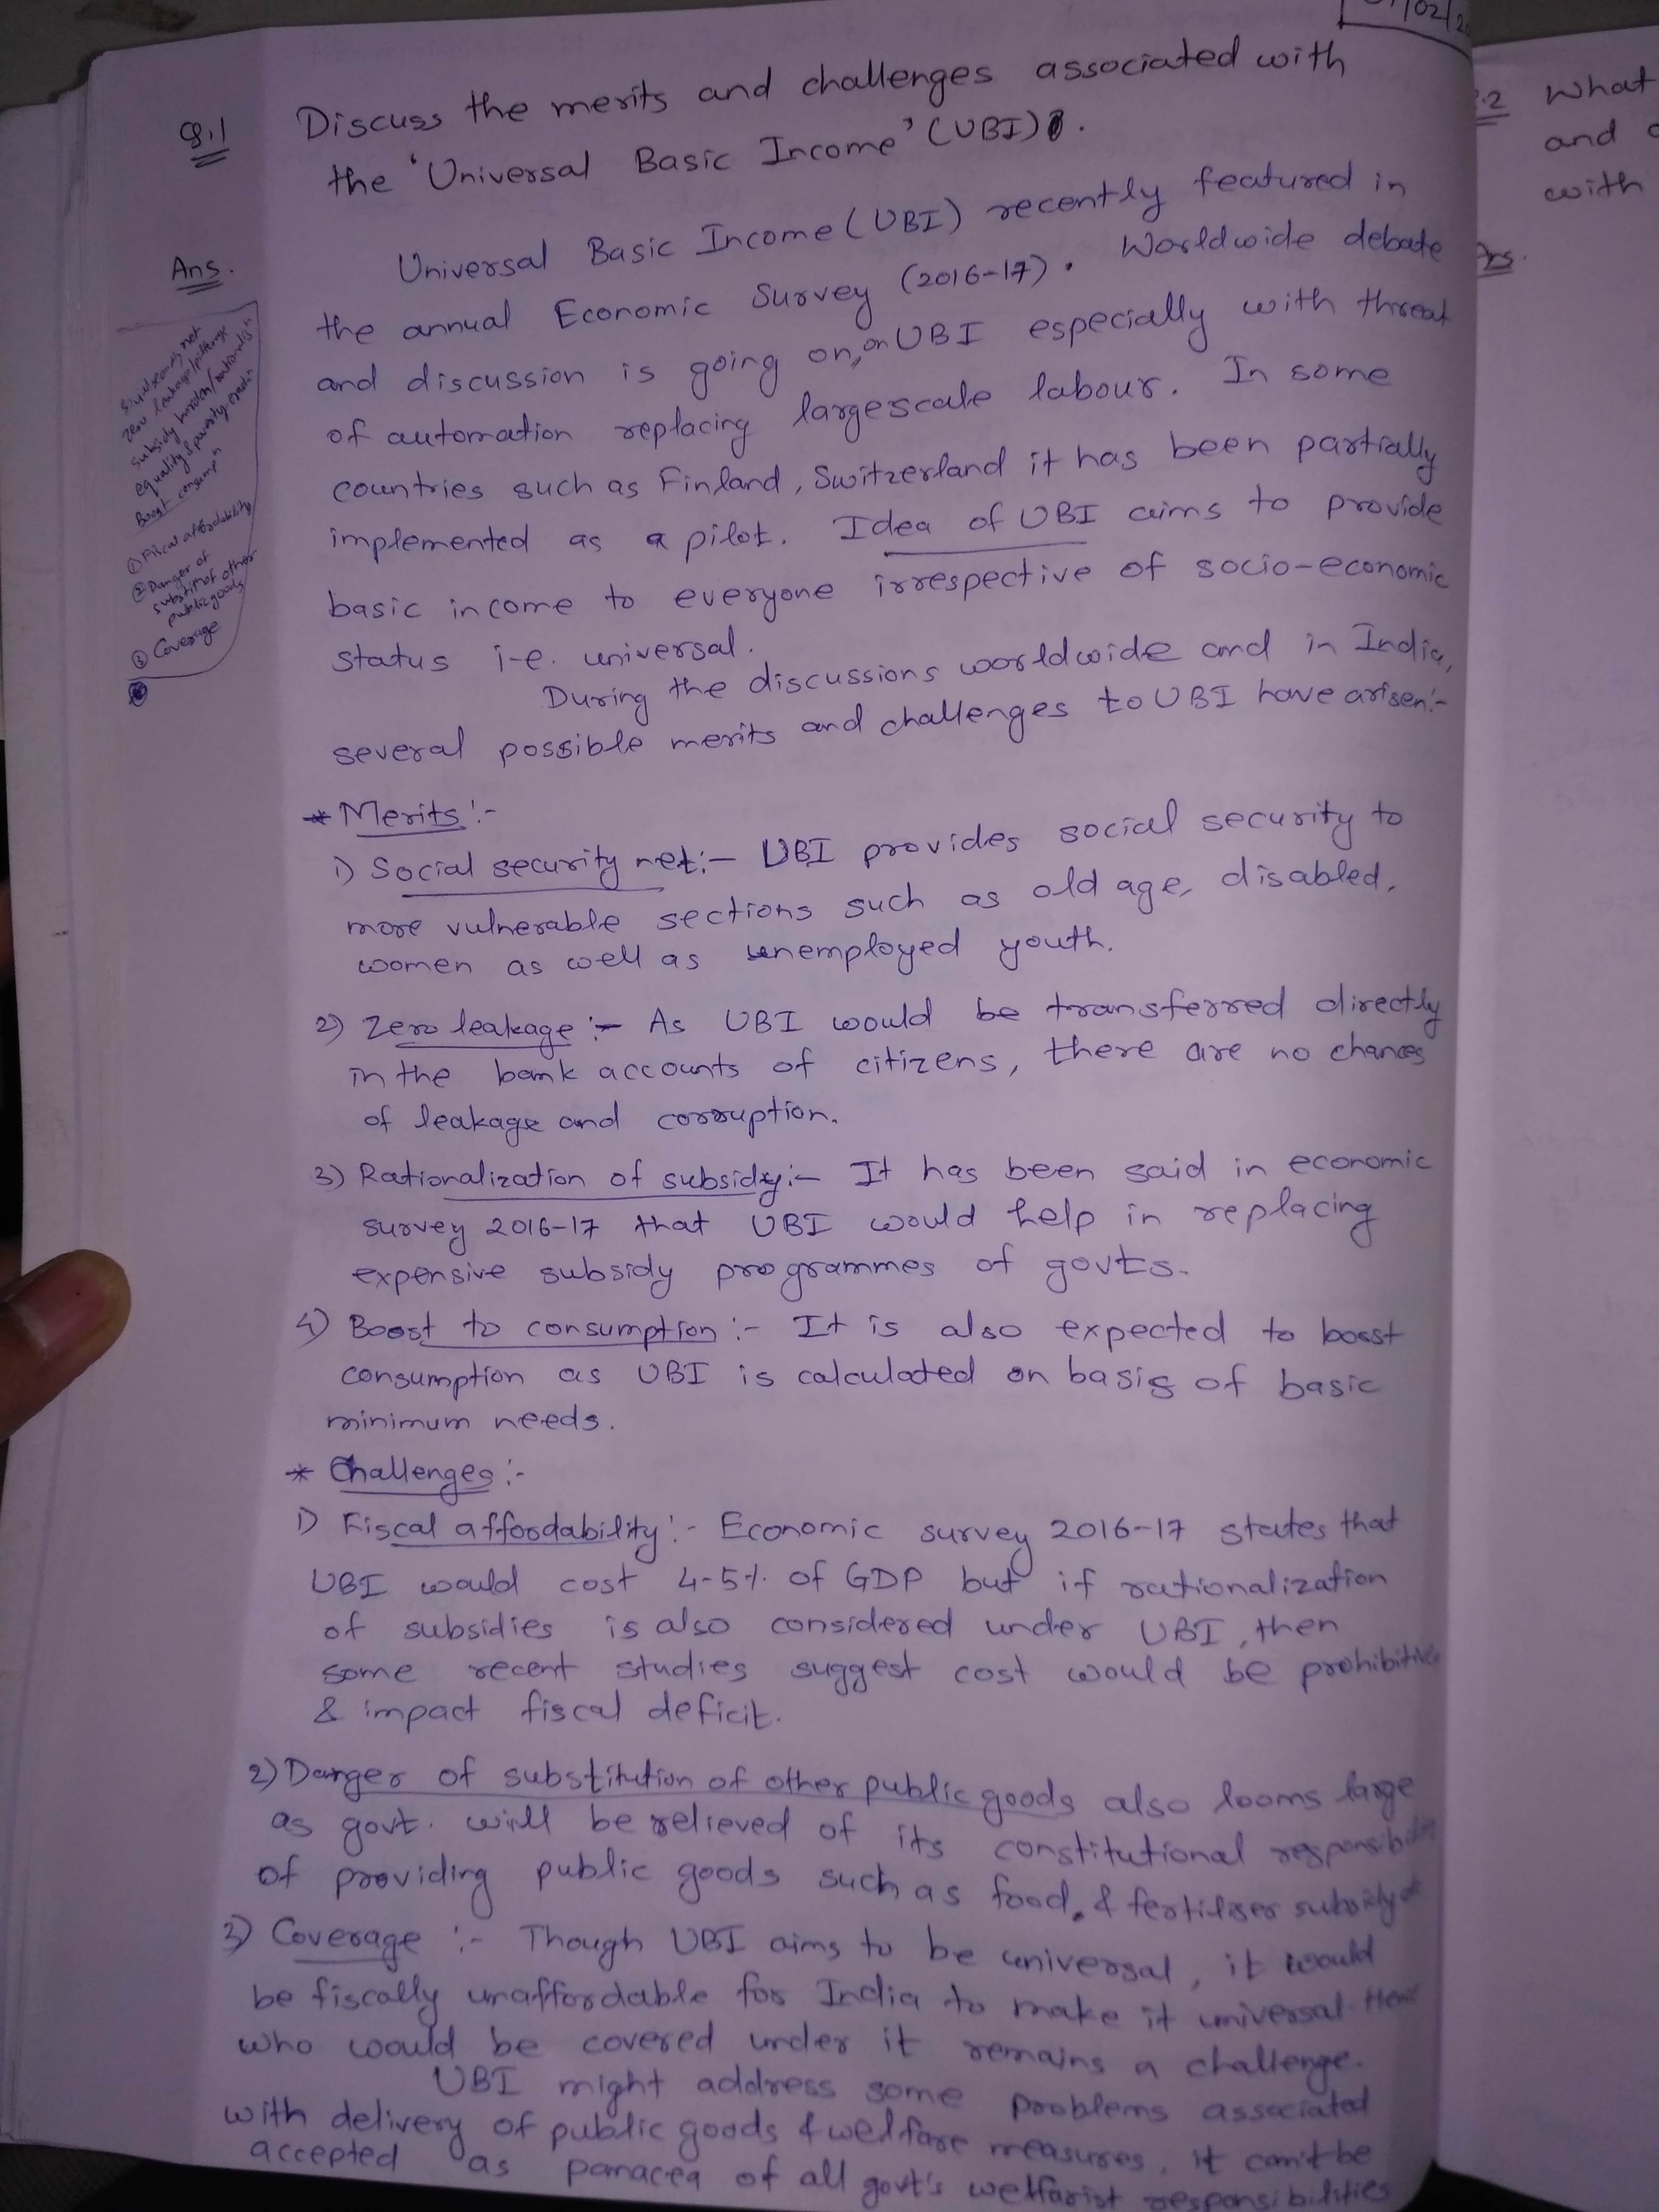 01/02/20
Q.1 Discuss the merits and challenges associated with
the 'Universal Basic Income' (UBI).
Ans. Universal Basic Income (UBI) recently featured in
the annual Economic Survey (2016-17). Worldwide debate
and discussion is going on, on UBI especially with threat
of automation replacing largescale labour. In some
countries such as Finland, Switzerland it has been partially
implemented as a pilot. Idea of UBI aims to provide
basic income to everyone irrespective of socio-economic
status i-e. universal.
During the discussions worldwide and in India,
several possible merits and challenges to UBI have arisen:-
* Merits:-
1) Social security net:- UBI provides social security to
more vulnerable sections such as old age, disabled,
women as well as unemployed youth.
2) Zero leakage:- As UBI would be transferred directly
in the bank accounts of citizens, there are no chances
of leakage and corruption.
3) Rationalization of subsidy:- It has been said in economic
survey 2016-17 that UBI would help in replacing
expensive subsidy programmes of govts.
4) Boost to consumption:- It is also expected to boost
consumption as UBI is calculated on basis of basic
minimum needs.
* Challenges:-
1) Fiscal affordability:- Economic survey 2016-17 states that
UBI would cost 4-5% of GDP but if rationalization
of subsidies is also considered under UBI, then
some recent studies suggest cost would be prohibitive
& impact fiscal deficit.
2) Danger of substitution of other public goods also looms large
as govt. will be relieved of its constitutional
of providing public goods such as food, & fertiliser subsidy
3) Coverage:- Though UBI aims to be universal, it would
be fiscally unaffordable for India to make it universal.
who would be covered under it remains a challenge.
UBI might address some problems associated
with delivery of public goods & welfare measures, it can't be
accepted as panacea of all govt's welfarist responsibilities
security net
zero leakage/pilferage
subsidy burden/
equality & poverty
Boost consumpn
① Fiscal affordability
② Danger of
substitn of other
public goods
③ Coverage
Q.2 What
and
with
Ans.